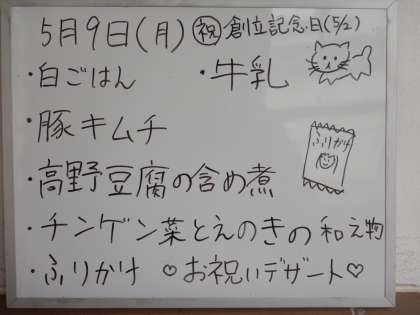 5月9日(月) ㊗ 創立記念日(5/2)
・白ごはん ・牛乳
・豚キムチ
・高野豆腐の含め煮
ふりかけ
・チンゲン菜とえのきの和え物
・ふりかけ ♡お祝いデザート♡